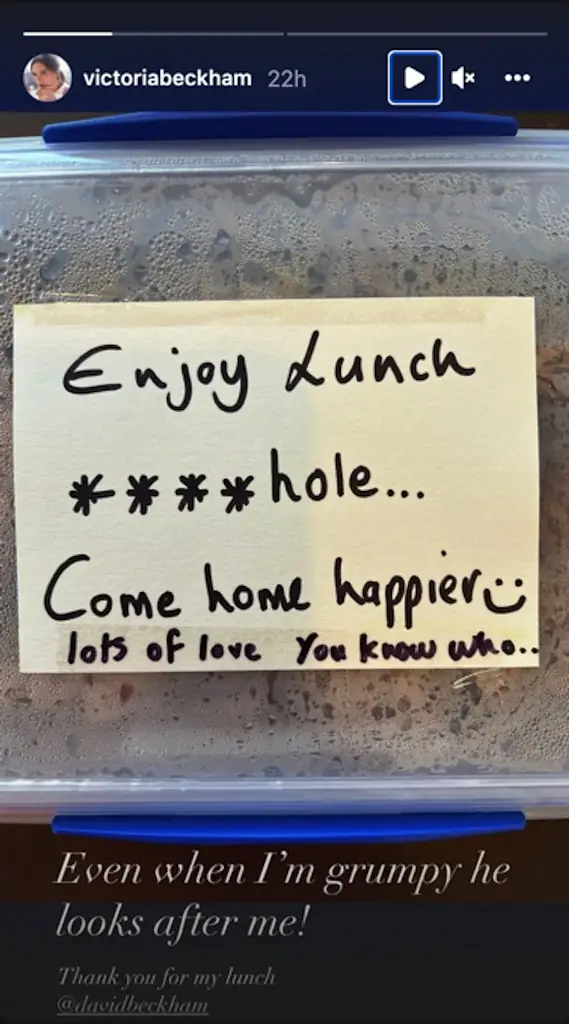 victoriabeckham 22h
Enjoy Lunch
****hole...
Come home happier
lots of love You know who..
Even when I'm grumpy he
looks after me!
Thank you for my lunch
@davidbeckham